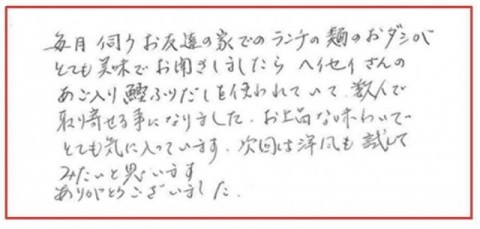 毎月伺うお友達の家でのランチの麺のおダシが
とても美味でお聞きしましたら ヘイセイさんの
あご入り鰹ふりだしを使われていて、数人で
取り寄せる事になりました。お上品な味わいで
とても気に入っています。次回は洋風も試して
みたいと思います
ありがとうございました。